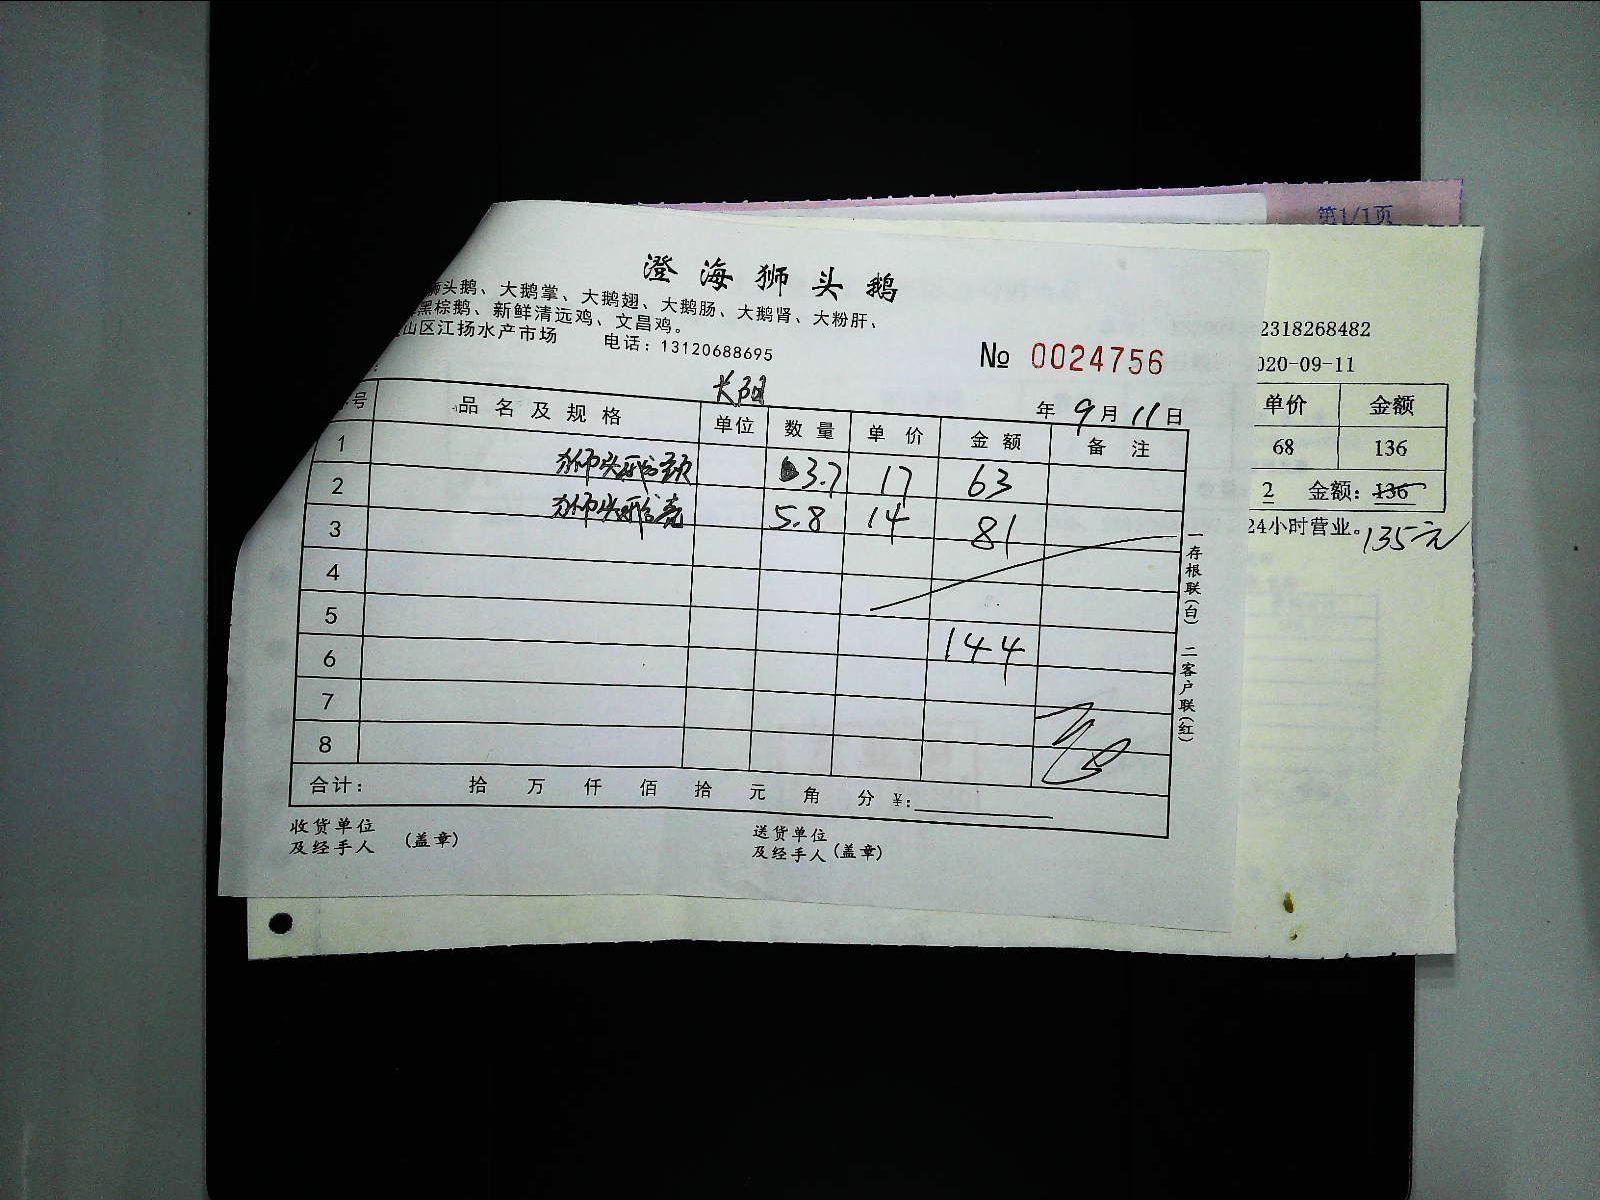 第1/1页
澄海狮头鹅
狮头鹅、大鹅掌、大鹅翅、大鹅肠、大鹅肾、大粉肝、
黑棕鹅、新鲜清远鸡、文昌鸡。
山区江扬水产市场 电话：13120688695
№ 0024756
2318268482
020-09-11
长阳
年 9月 11日
号 品名及规格 单位 数量 单价 金额 备注
单价 金额
68 136
2 金额：136
24小时营业。135元
1 狮头鹅头 3.7 17 63
2 狮头鹅壳 5.8 14 81
3
4
5 144
6
7
8
合计： 拾 万 仟 佰 拾 元 角 分 ¥:
收货单位
及经手人 (盖章)
送货单位
及经手人 (盖章)
一存根联(白) 二客户联(红)